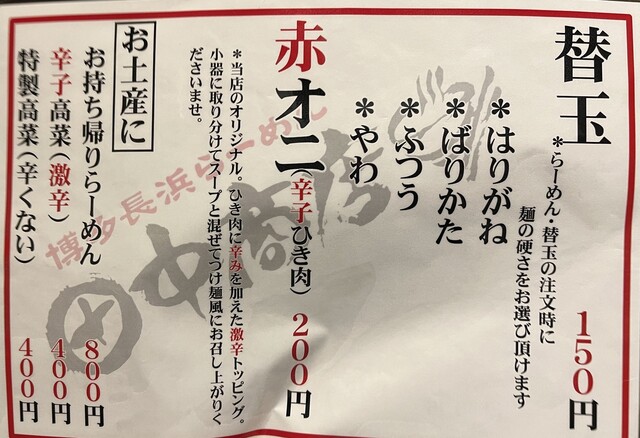 替玉 150円
＊らーめん・替玉の注文時に
麺の硬さをお選び頂けます
＊はりがね
＊ばりかた
＊ふつう
＊やわ
赤オニ(辛子ひき肉) 200円
＊当店のオリジナル。ひき肉に辛みを加えた激辛トッピング。
小器に取り分けてスープと混ぜてつけ麺風にお召し上がりく
ださいませ。
お土産に
お持ち帰りらーめん 800円
辛子高菜(激辛) 400円
特製高菜(辛くない) 400円
博多長浜らーめん